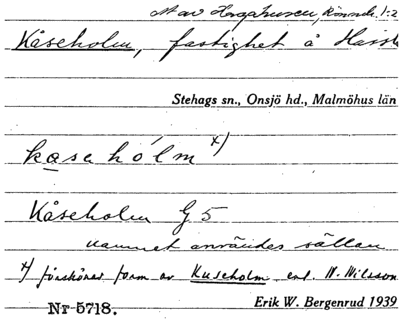 M av Hergahusen, Rönneh. 1:2
Kåseholm, fastighet å Hassle
Stehags sn., Onsjö hd., Malmöhus län
kaseho´lm x)
Kåseholm G 5
namnet användes sällan
x) förskönad form av Kuseholm enl. N. Nilsson
Nr 5718. Erik W. Bergenrud 1939